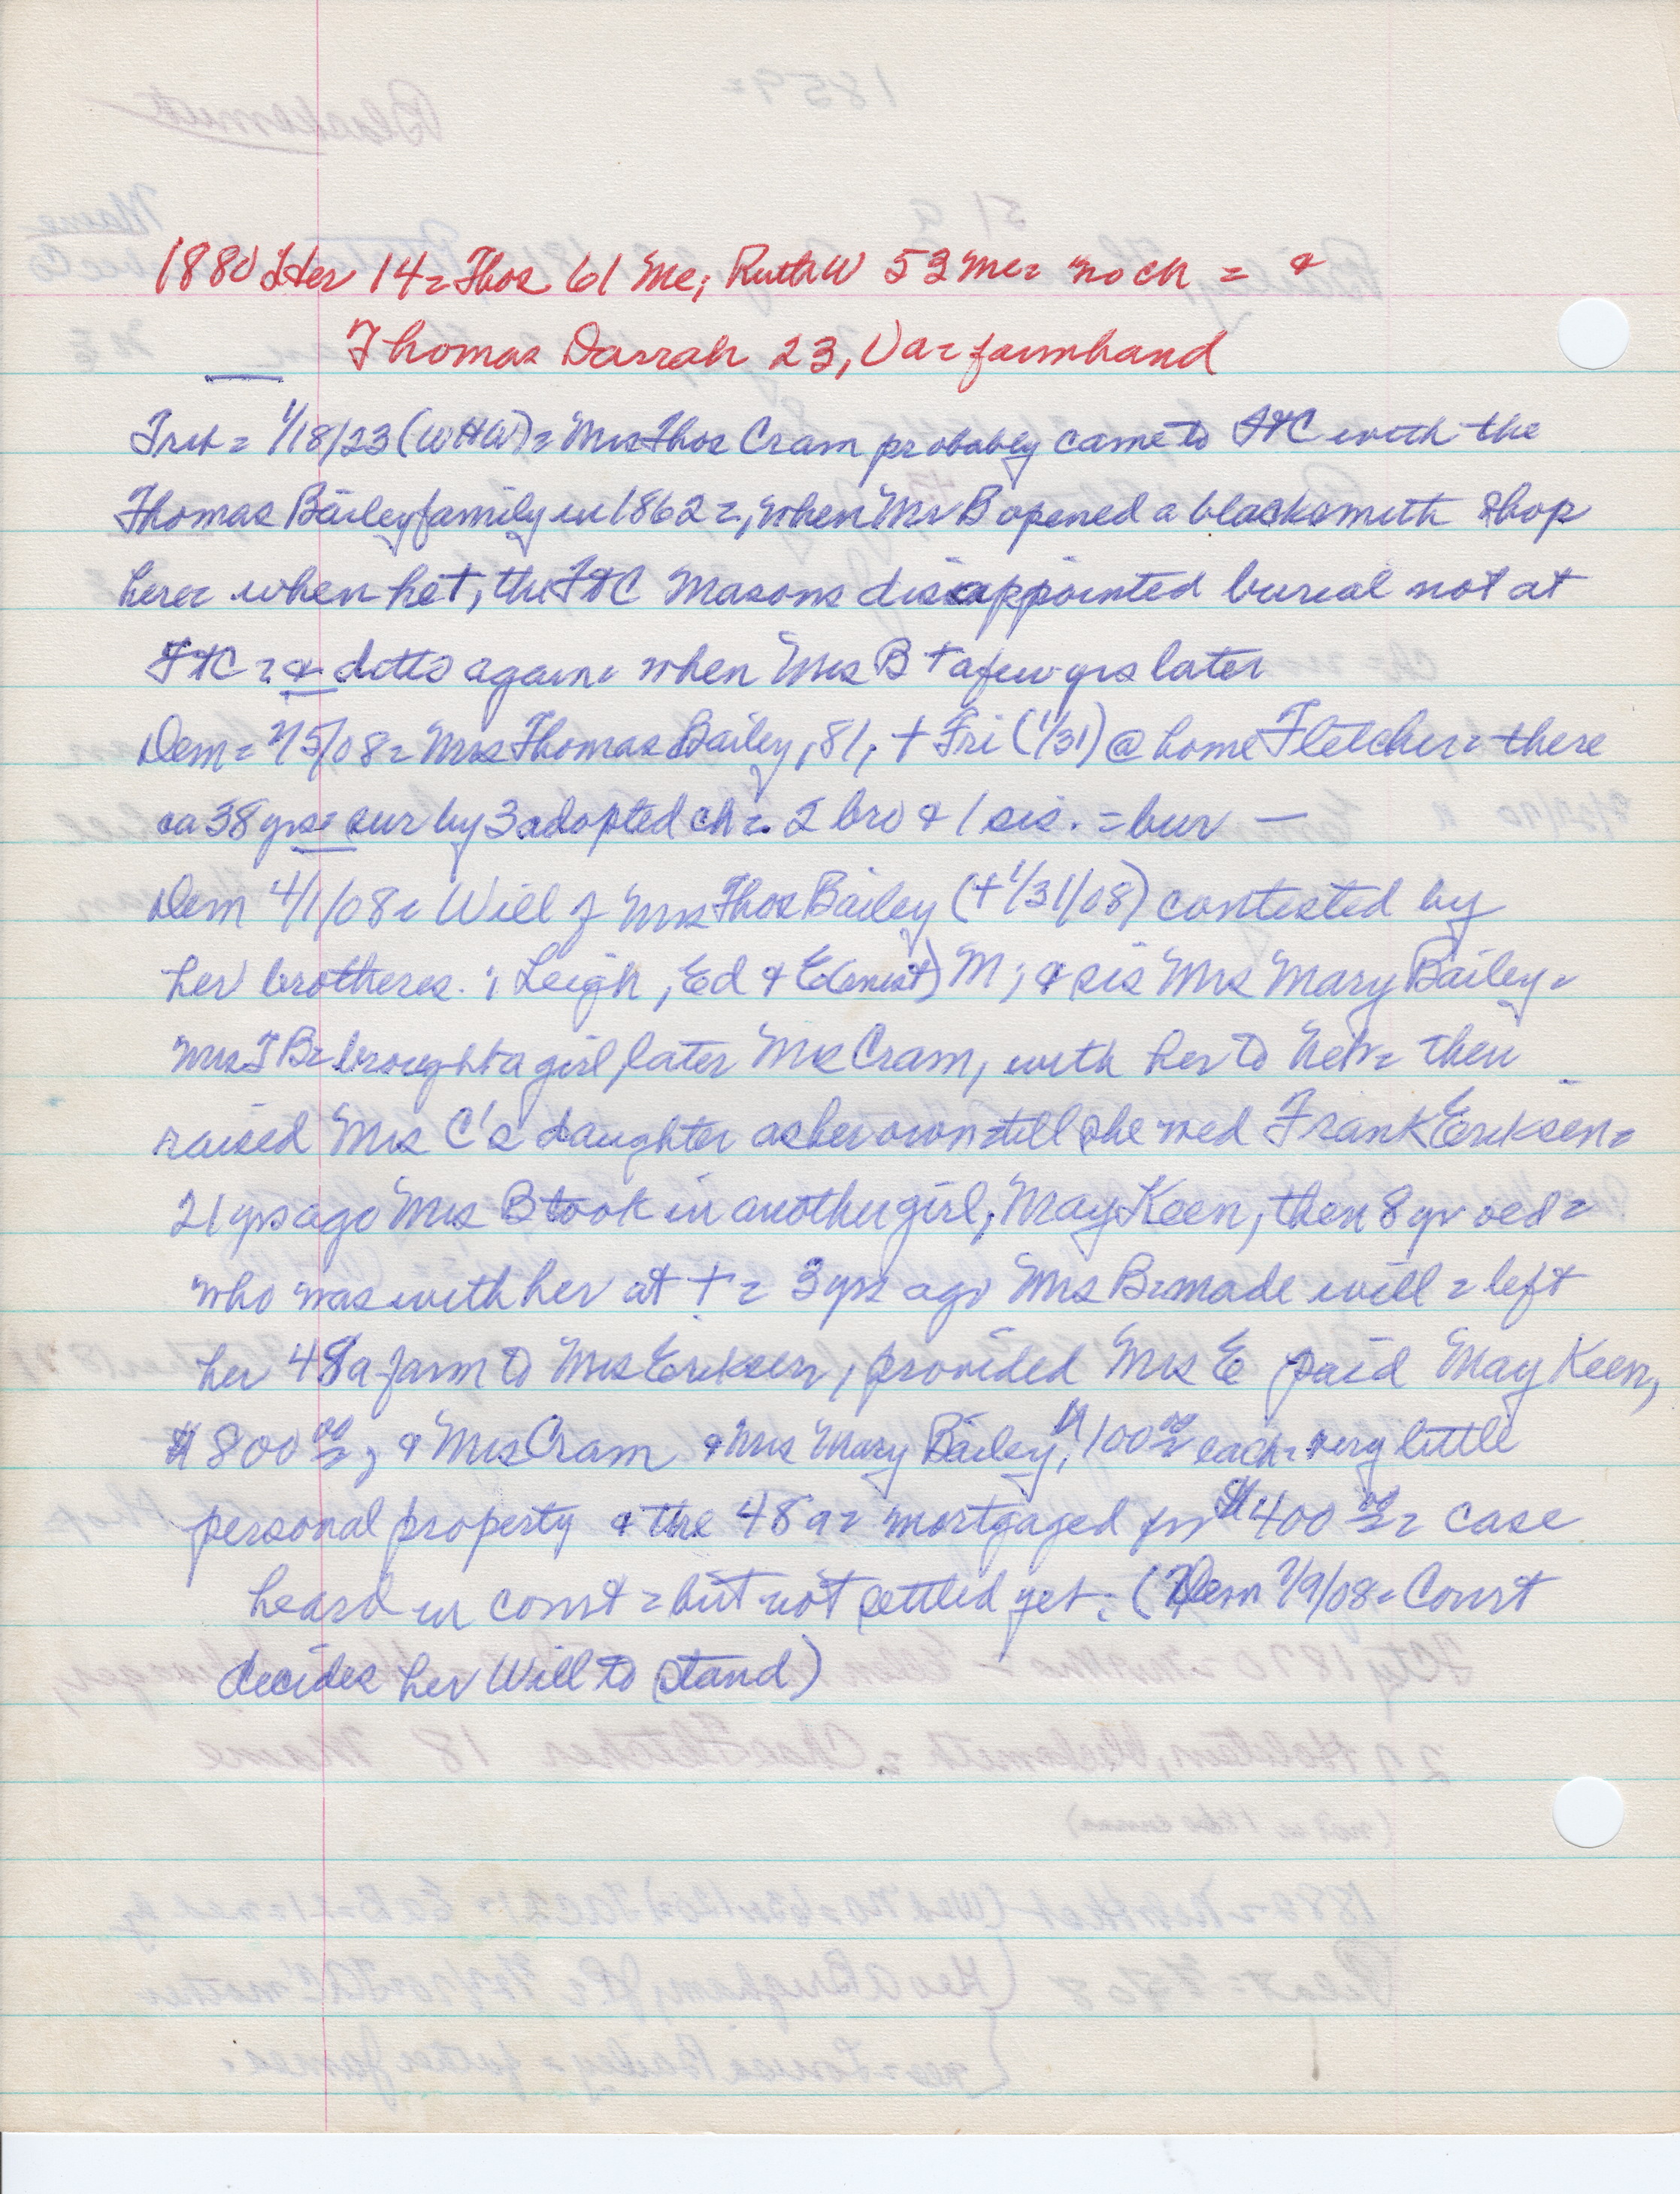 1880 Her 14 = Thos 61 Me; Ruth W 53 Me = no ch = &
Thomas Darrah 23, Va = farmhand
Trib = 1/18/23 (WHW) = Mrs Thos Cram probably came to FtC with the
Thomas Bailey family in 1862 =, when Mr B opened a blacksmith shop
here = when he †, the FtC Masons disappointed burial not at
FtC = & ditto again = when Mrs B † a few yrs later
Dem = 2/5/08 = Mrs Thomas Bailey, 81, † Fri (1/31) @ home Fletcher = there
ca 38 yrs = sur by 3 adopted ch = 2 bro & 1 sis. = bur —
Dem 4/1/08 = Will of Mrs Thos Bailey († 1/31/08) contested by
her brothers : Leigh, Ed & E(rnest) M ; & sis Mrs Mary Bailey =
Mrs T B = brought a girl, later Mrs Cram, with her to Neb = then
raised Mrs C's daughter as her own = till she wed Frank Eriksen =
21 yrs ago Mrs B took in another girl, May Keen, then 8 yr old =
who was with her at † = 3 yrs ago Mrs B = made will = left
her 48 a farm to Mrs Eriksen, provided Mrs E paid May Keen,
$800 00, & Mrs Cram & Mrs Mary Bailey, $100 00 each = very little
personal property & the 48 a = mortgaged for $400 00 = case
heard in court = but not settled yet : (Dem 7/9/08 = Court
decides her Will to stand)